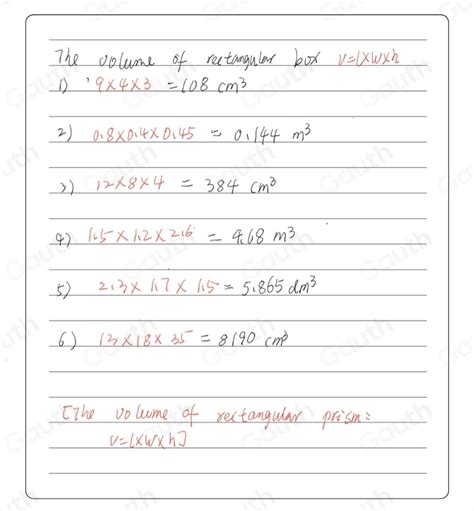 The volume of rectangular box V=l×w×h
1) 9×4×3 = 108 cm³
2) 0.8×0.4×0.45 = 0.144 m³
3) 12×8×4 = 384 cm³
4) 1.5×1.2×2.6 = 4.68 m³
5) 2.3×1.7×1.5 = 5.865 dm³
6) 13×18×35 = 8190 cm³
[The volume of rectangular prism:
V=l×w×h]